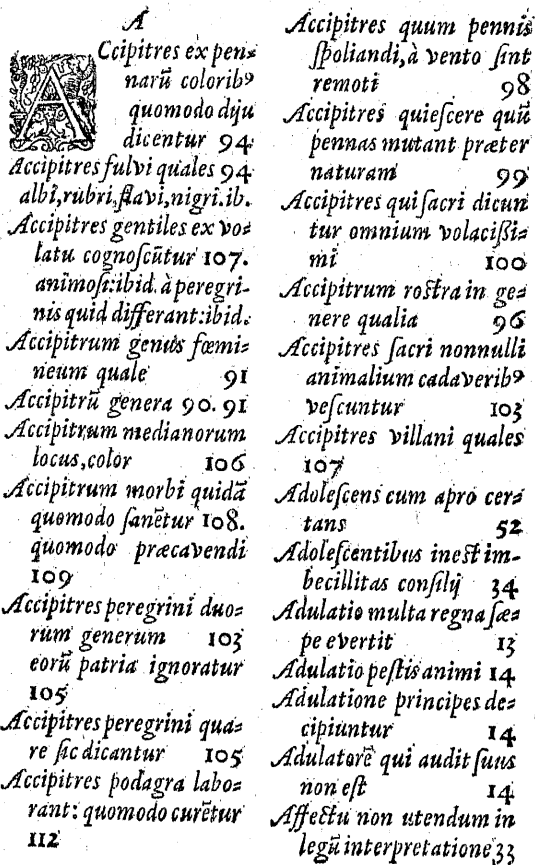 A
ACcipitres ex pen⸗
narũ coloribꝰ
quomodo diju
dicentur 94
Accipitres fulvi quales 94
albi, rubri, flavi, nigri. ib.
Accipitres gentiles ex vo⸗
latu cognoſcũtur 107.
animoſi: ibid. à peregri-
nis quid differant: ibid.
Accipitrum genus fœmi⸗
neum quale 91
Accipitrũ genera 90. 91
Accipitrum medianorum
locus, color 106
Accipitrum morbi quidã
quomodo ſanẽtur 108.
quomodo præcavendi
109
Accipitres peregrini duo⸗
rum generum 103
eorũ patria ignoratur
105
Accipitres peregrini qua⸗
re ſic dicantur 105
Accipitres podagra labo⸗
rant: quomodo curẽtur
112
Accipitres quum pennis
ſpoliandi, à vento ſint
remoti 98
Accipitres quieſcere quũ
pennas mutant præter
naturam 99
Accipitres qui ſacri dicun
tur omnium volaciſſi⸗
mi 100
Accipitrum roſtra in ge⸗
nere qualia 96
Accipitres ſacri nonnulli
animalium cadaveribꝰ
veſcuntur 103
Accipitres villani quales
107
Adoleſcens cum apro cer⸗
tans 52
Adoleſcentibus ineſt im-
becillitas conſilij 34
Adulatio multa regna ſæ⸗
pe evertit 13
Adulatio peſtis animi 14
Adulatione principes de⸗
cipiuntur 14
Adulatorẽ qui audit ſuus
non eſt 14
Affectu non utendum in
legũ interpretatione 33